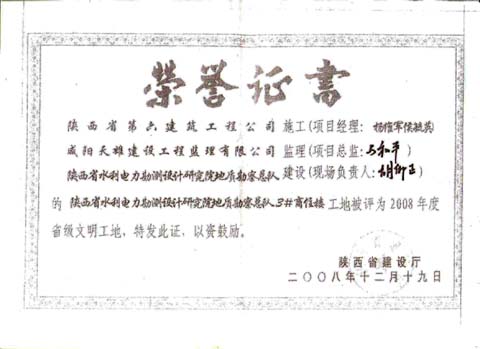 荣誉证书
陕西省第六建筑工程公司 施工(项目经理:杨惟军侯被英)
咸阳天雄建设工程监理有限公司 监理(项目总监:马和平)
陕西省水利电力勘测设计研究院地质勘察总队 建设(现场负责人:胡仰正)
的 陕西省水利电力勘测设计研究院地质勘察总队3#商住楼 工地被评为2008年度
省级文明工地,特发此证,以资鼓励。
陕西省建设厅
二〇〇八年十二月十九日